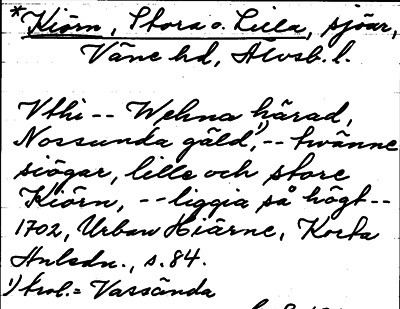 *Kiörn, Stora o. Lilla, sjöar,
Väne hd, Älvsb. l.
Vthi -- Wehna härad,
Nossunda gäld¹⁾, -- twänne
siögar, lille och store
Kiörn, -- liggia så högt --
1702, Urban Hiärne, Korta
Anledn., s. 84.
¹⁾ trol. = Vassända